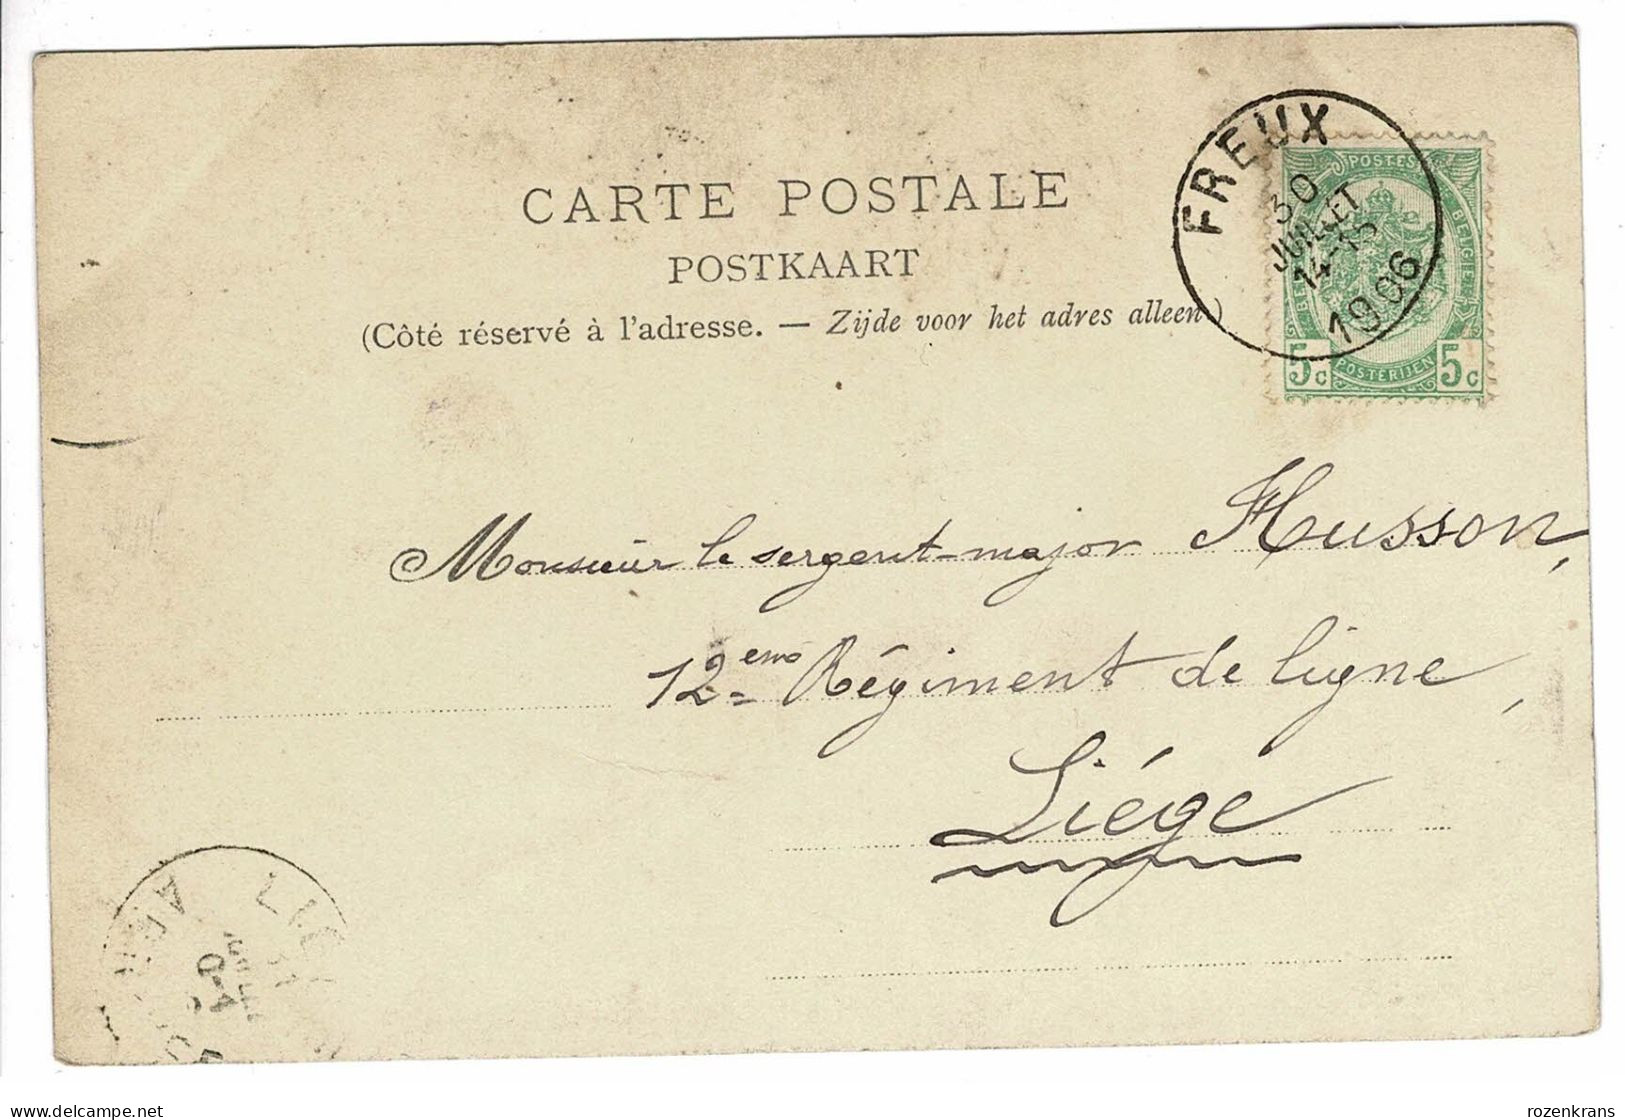 CARTE POSTALE
POSTKAART
(Côté réservé à l'adresse. — Zijde voor het adres alleen)
FREUX
30
JUILLET
14-15
1906
POSTES
BELGIE
POSTERIJEN
5c 5c
Monsieur le sergent-major Husson,
12eme Régiment de ligne,
Liége
rozenkrans